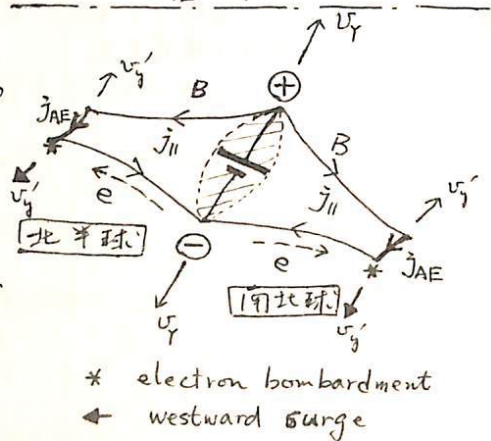 v_Y
v_y'
B
⊕
j_AE
j_∥
B
v_y'
v_y'
e
j_∥
北半球
⊖
e
j_AE
南北球
v_Y
v_y'
* electron bombardment
◀ westward surge